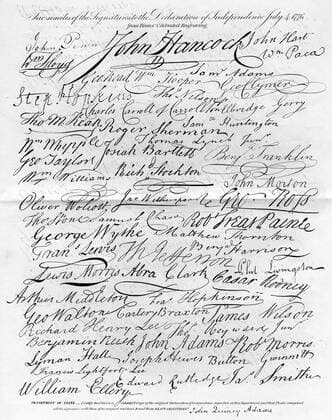 Facsimiles of the Signatures to the Declaration of Independence July 4, 1776,
from Binns' Celebrated Engraving.
John Penn John Hancock John Hart
Wm Floyd Wm Paca
Geo Read Wm Hooper Sam Adams
Step Hopkins Thos Nelson Geo Clymer
Charles Carroll of Carrollton Elbridge Gerry
Tho M:Kean Roger Sherman Sam Huntington
Wm Whipple Thomas Lynch Junr
Geo Taylor Josiah Bartlett Benj Franklin
Wm Williams Rich Stockton
John Morton
Oliver Wolcott Jno Witherspoon Geo Ross
Thos Stone Samuel Chase Robt Treat Paine
George Wythe Matthew Thornton
Fran Lewis Th Jefferson Benj Harrison
Lewis Morris Abra Clark Caesar Rodney Phil Livingston
Arthur Middleton Fras Hopkinson
Geo Walton Carter Braxton James Wilson
Richard Henry Lee Tho Heyward Junr
Benjamin Rush John Adams Robt Morris
Lyman Hall Joseph Hewes Button Gwinnett
Francis Lightfoot Lee
William Ellery Edward Rutledge Ja Smith
DEPARTMENT OF STATE
John Quincy Adams